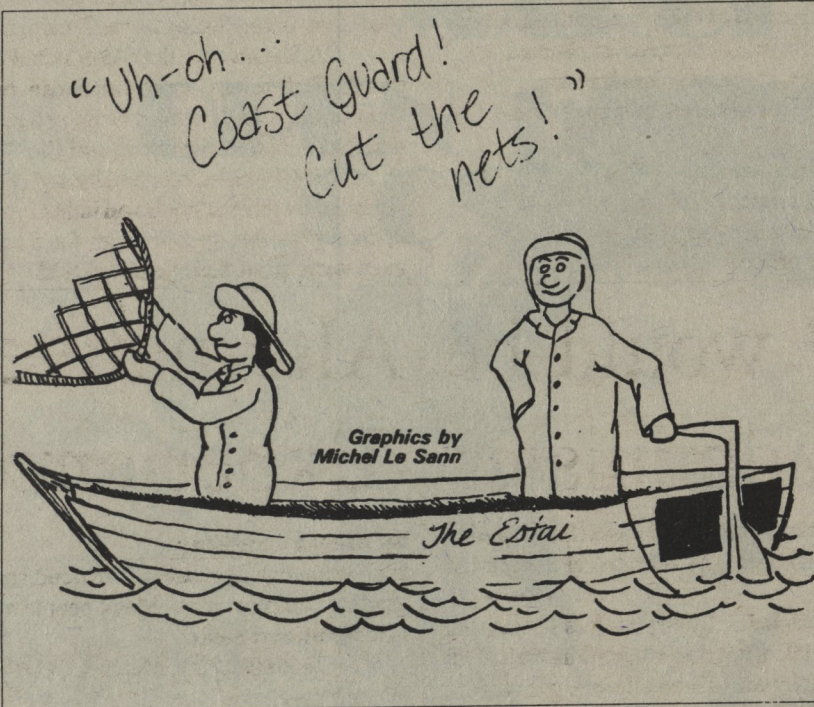 "Uh-oh...
Coast Guard!
Cut the
nets!"
Graphics by
Michel Le Sann
The Estai